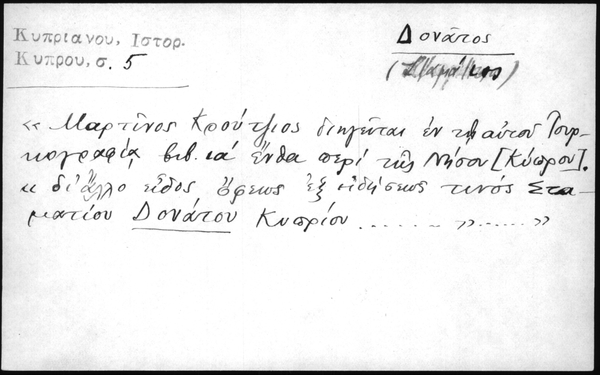 Κυπριανου, Ιστορ.
Κυπρου, σ. 5
Δονᾶτος
« Μαρτῖνος Κρούτζιος διηγεῖται ἐν τῇ αὐτοῦ Τουρ-
κογραφίᾳ βιβ. ια΄ ἔνθα περί τῆς Νήσου [Κύπρου].
« δι' ἄλλο εἶδος ὄφεως ἐξ εἰδήσεως τινός Στα-
ματίου Δονάτου Κυπρίου ...... » ...... »